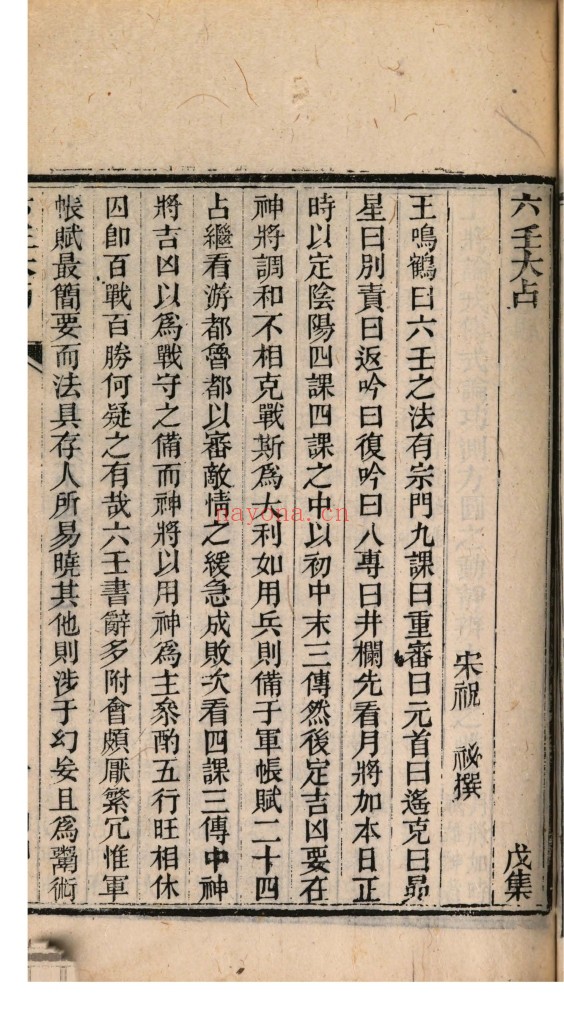 六壬大占
戊集
宋祝　祕撰
王鳴鶴曰六壬之法有宗門九課曰重審曰元首曰遙克曰昴
星曰別責曰返吟曰復吟曰八專曰井欄先看月將加本日正
時以定陰陽四課四課之中以初中末三傳然後定吉凶要在
神將調和不相克戰斯爲大利如用兵則備于軍帳賦二十四
占繼看游都魯都以審敵情之緩急成敗次看四課三傳中神
將吉凶以爲戰守之備而神將以用神爲主叅酌五行旺相休
囚卽百戰百勝何疑之有哉六壬書辭多附會頗厭繁冗惟軍
帳賦最簡要而法具存人所易曉其他則涉于幻妄且爲鬻術
nayona.cn